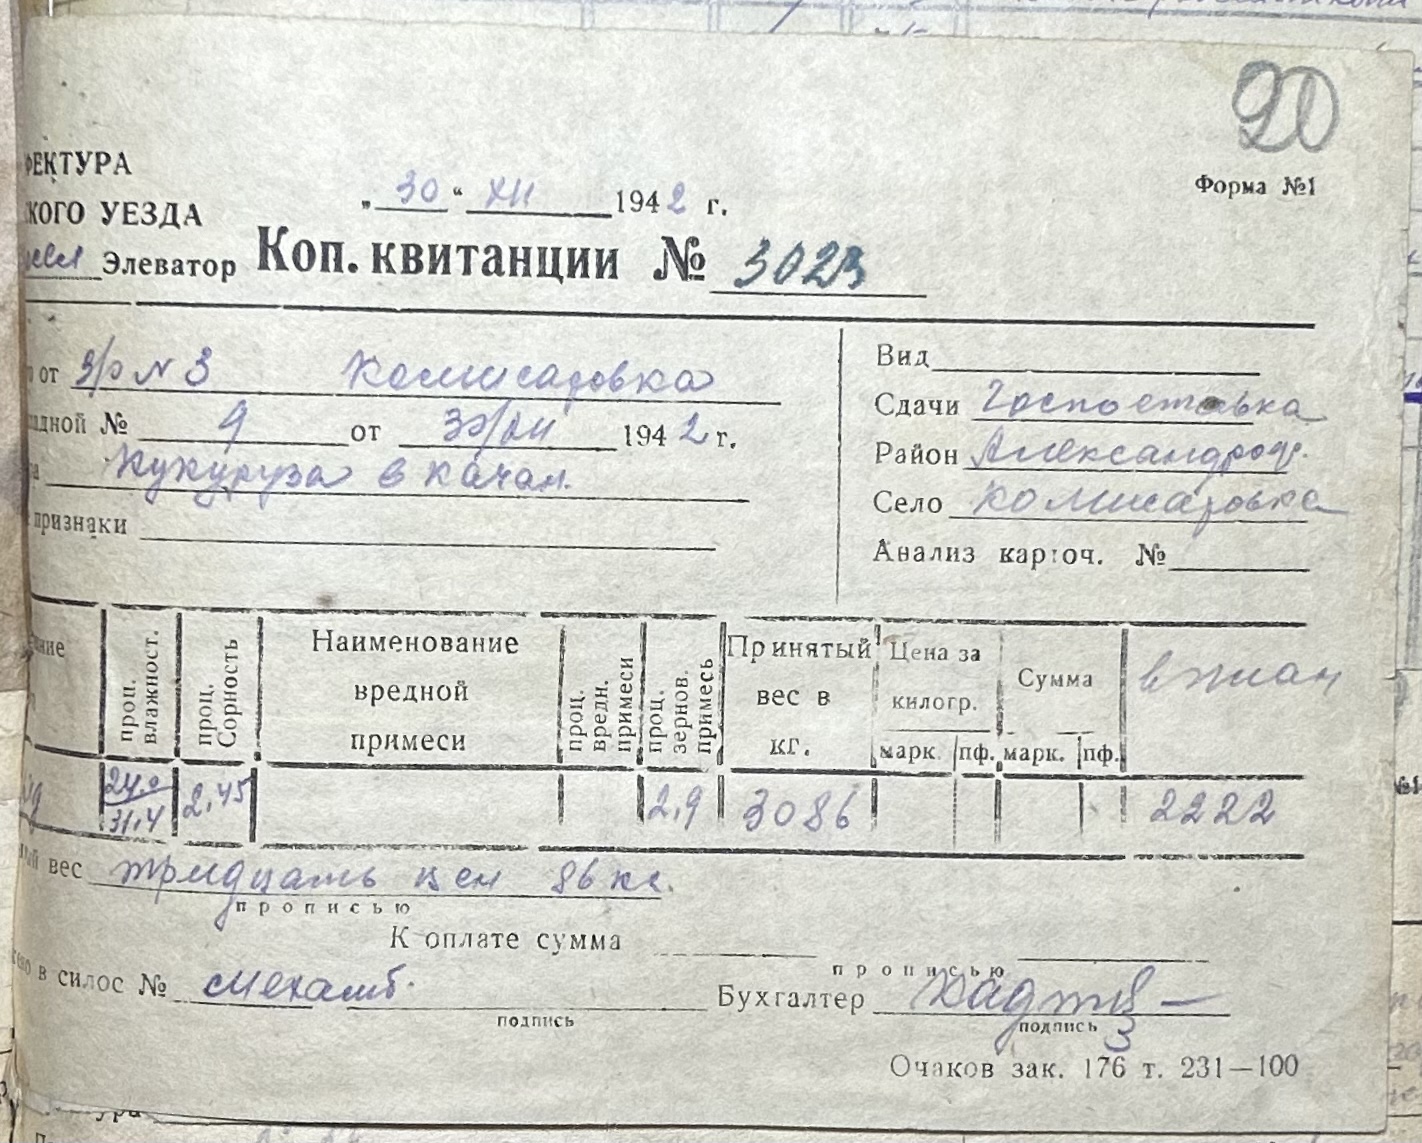 20
ФЕКТУРА
Форма №1
КОГО УЕЗДА
„ 30 “ XII 1942 г.
Элеватор Коп. квитанции № 3023
о от з/о N 3 Комисаровка
адной № 9 от 30/XII 1942 г.
а кукуруза в качан.
признаки
Вид
Сдачи Госпоставка
Район Александров.
Село Комисаровка
Анализ карточ. №
проц. влажност.
проц. Сорность
Наименование вредной примеси
проц. вредн. примеси
проц. зернов. примесь
Принятый вес в кг.
Цена за килогр.
марк. пф.
Сумма
марк. пф.
в план
24.0
31.4 2,45 2,9 3086 2222
вес тридцать цен 86 кг.
прописью
К оплате сумма
прописью
в силос №
подпись
Бухгалтер
подпись
Очаков зак. 176 т. 231—100